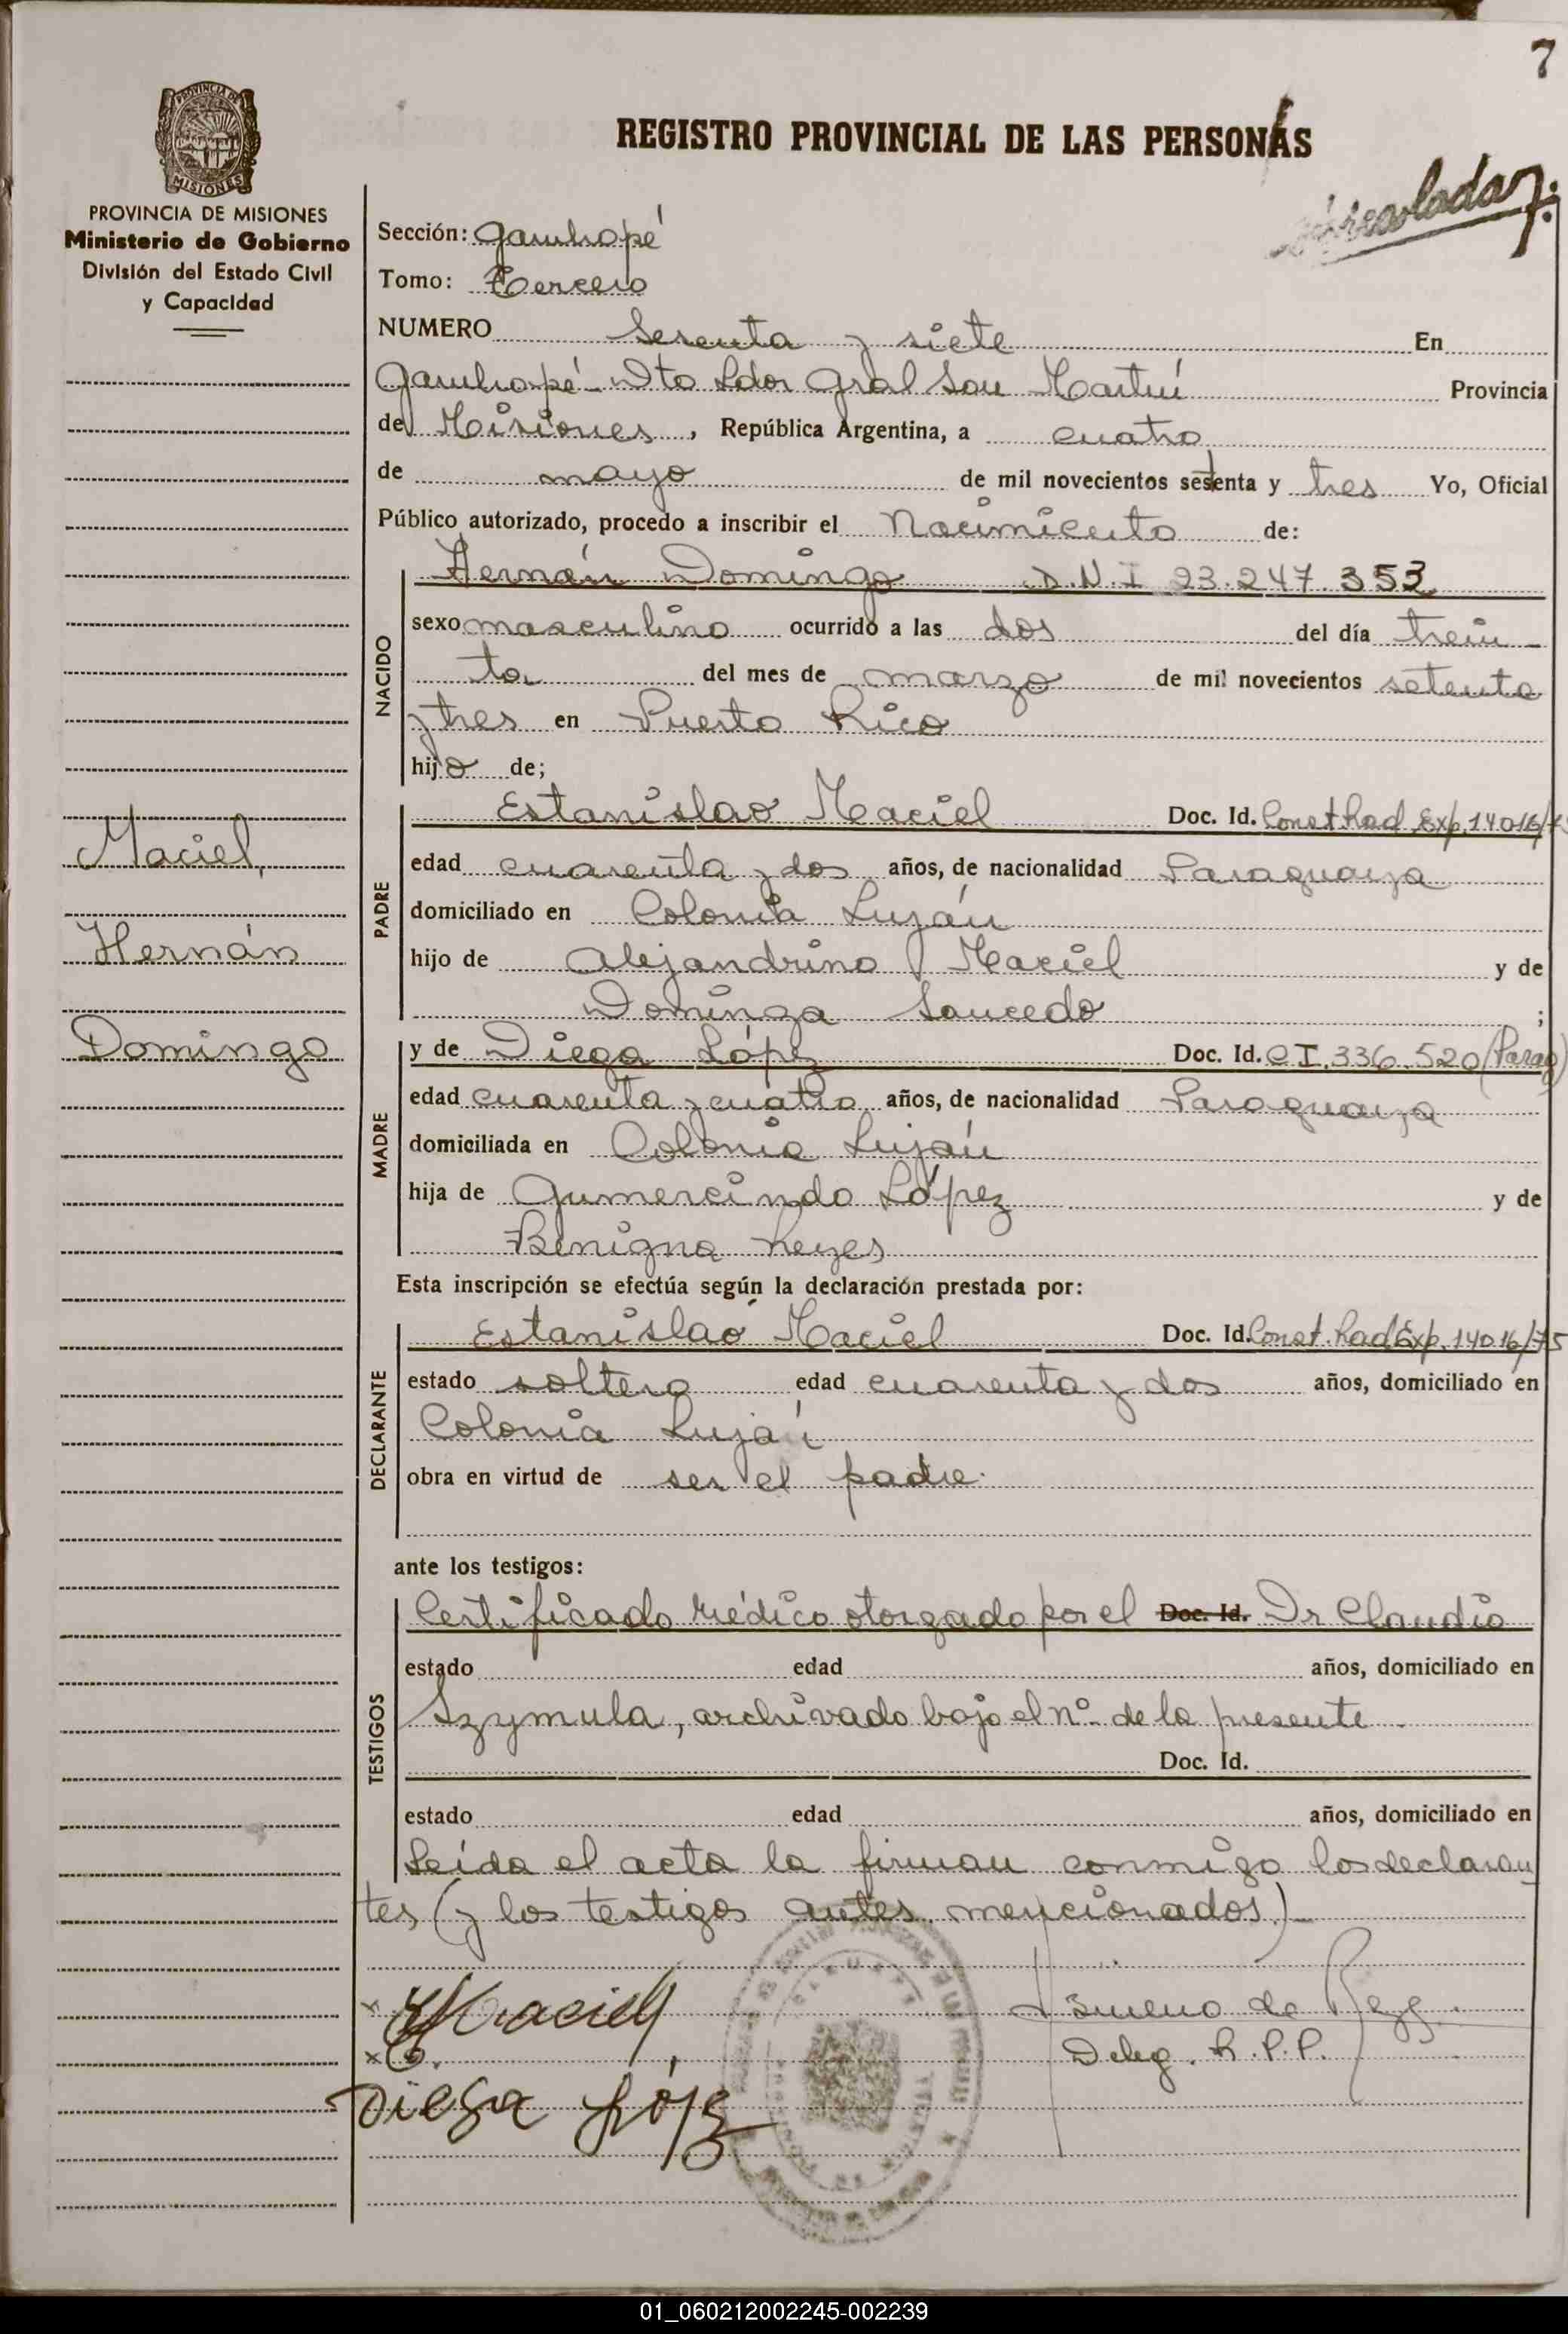 7
PROVINCIA DE
MISIONES
PROVINCIA DE MISIONES
Ministerio de Gobierno
División del Estado Civil
y Capacidad
REGISTRO PROVINCIAL DE LAS PERSONAS
Sección: Garuhapé
Tomo: Tercero
NUMERO Sesenta y siete En
Garuhapé Dto Ldor Gral San Martín Provincia
de Misiones, República Argentina, a cuatro
de mayo de mil novecientos setenta y tres Yo, Oficial
Público autorizado, procedo a inscribir el Nacimiento de:
NACIDO
Hernán Domingo D.N.I 23.247.353
sexo masculino ocurrido a las dos del día trein-
ta del mes de marzo de mil novecientos setenta
y tres en Puerto Rico
hijo de;
PADRE
Estanislao Maciel Doc. Id. Const. Rad. Exp. 14016/75
edad cuarenta y dos años, de nacionalidad Paraguaya
domiciliado en Colonia Luján
hijo de Alejandrino Maciel y de
Dominga Saucedo ;
MADRE
y de Diega López Doc. Id. C.I. 336.520 (Parag)
edad cuarenta y cuatro años, de nacionalidad Paraguaya
domiciliada en Colonia Luján
hija de Gumercindo López y de
Benigna Reyes
Esta inscripción se efectúa según la declaración prestada por:
DECLARANTE
Estanislao Maciel Doc. Id. Const. Rad Exp. 14016/75
estado soltero edad cuarenta y dos años, domiciliado en
Colonia Luján
obra en virtud de ser el padre.
ante los testigos:
TESTIGOS
Certificado Médico otorgado por el Doc. Id. Dr Claudio
estado edad años, domiciliado en
Szymula, archivado bajo el nº de la presente
Doc. Id.
estado edad años, domiciliado en
Leída el acta la firman conmigo los declaran
tes (y los testigos antes mencionados)
Maciel
Deleg. R.P.P.
Diega López
Maciel,
Hernán
Domingo
01_060212002245-002239